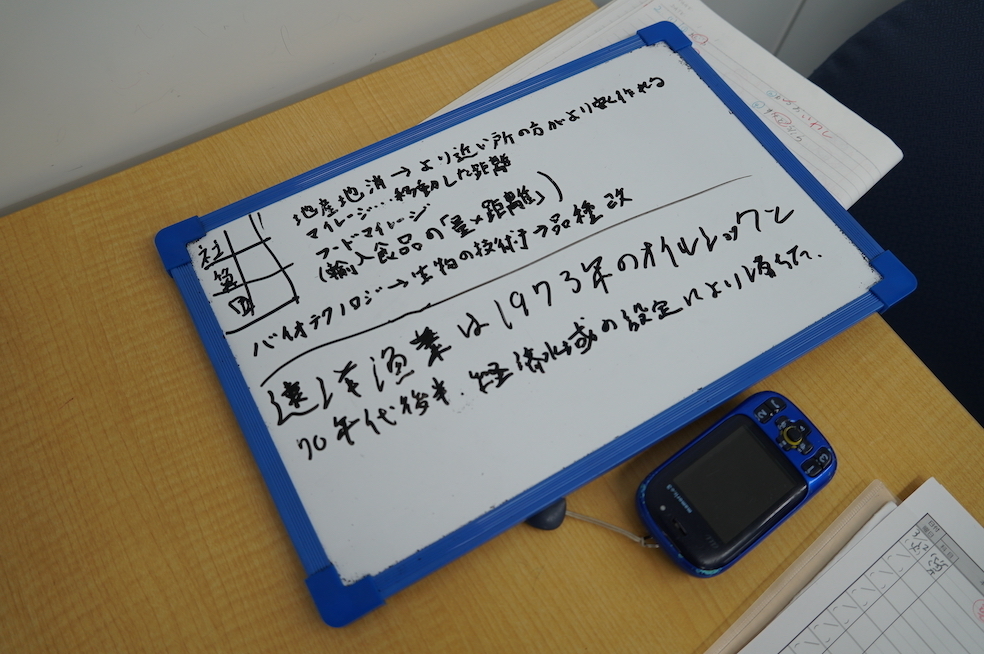 社
算
国
地産地消→より近い所の方がより安く作れる
マイレージ…移動した距離
フードマイレージ
(輸入食品の「量×距離」)
バイオテクノロジ→生物の技術→品種改
遠洋漁業は1973年のオイルショックと
70年代後半.経済水域の設定により